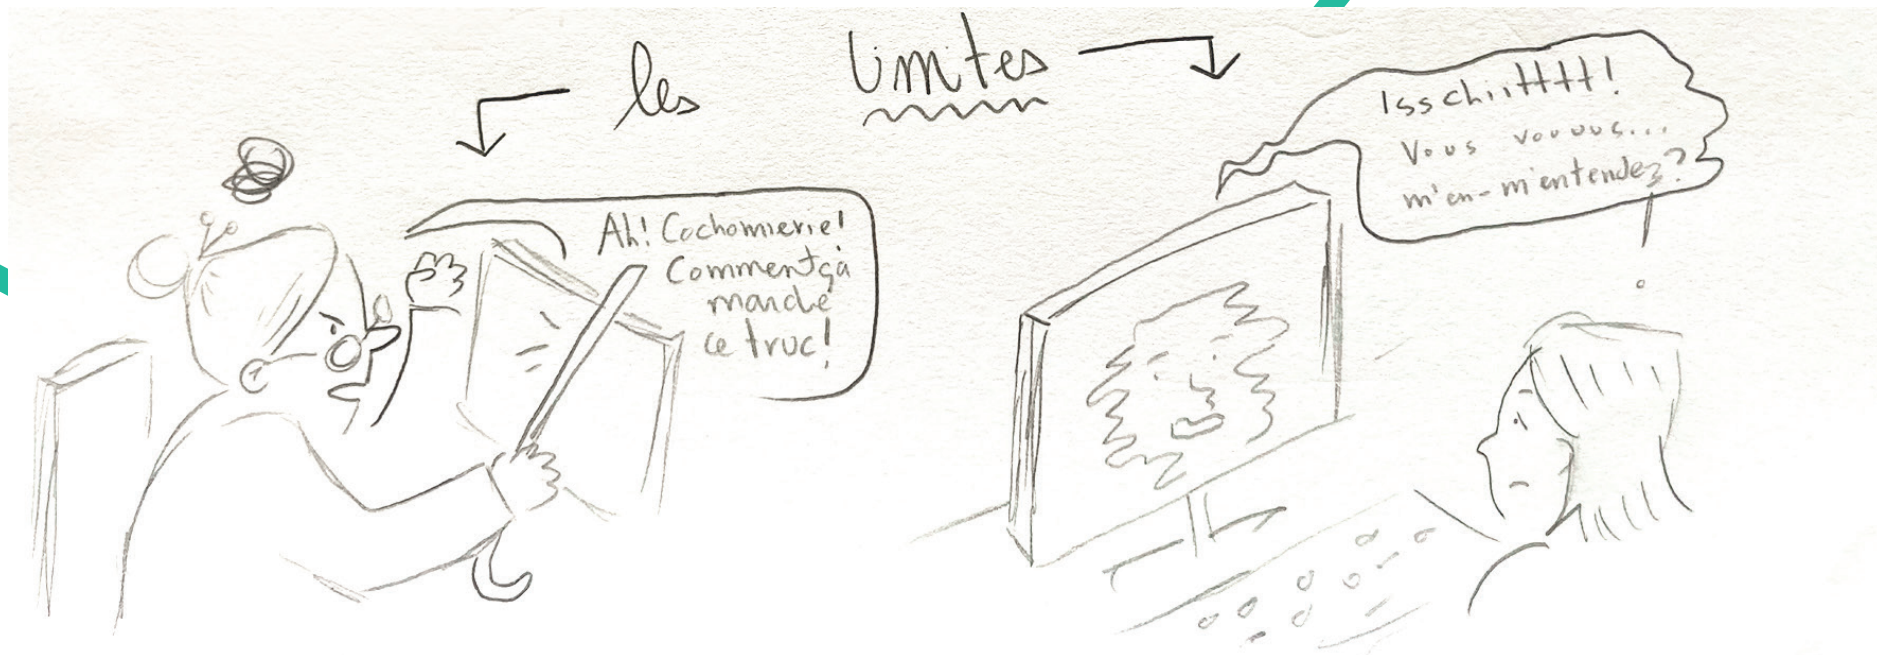 les limites
Ah! Cochonnerie!
Comment ça
marche
ce truc!
Isschiitttt!
Vous vouuus...
m'en-m'entendez?